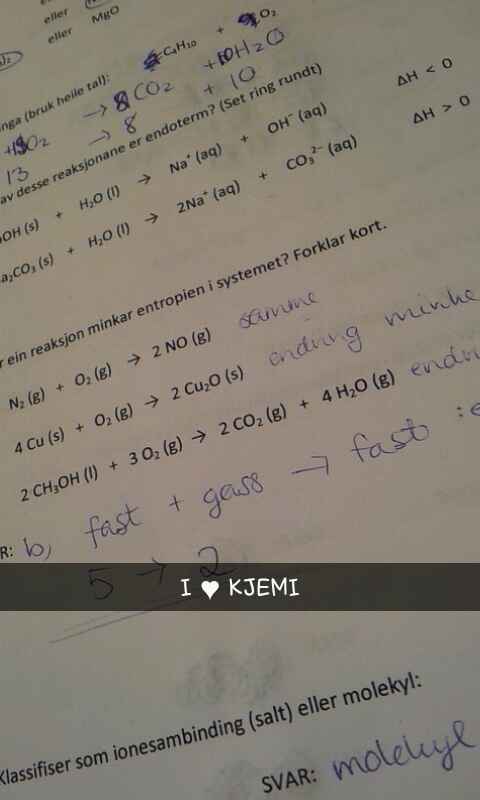 eller
eller MgO
inga (bruk heile tal): C₄H₁₀ + O₂
O₂ → 8 CO₂ + 10 H₂O
13 → 8 + 10
av desse reaksjonane er endoterm? (Set ring rundt)
OH (s) + H₂O (l) → Na⁺ (aq) + OH⁻ (aq) ΔH < 0
a₂CO₃ (s) + H₂O (l) → 2Na⁺ (aq) + CO₃²⁻ (aq) ΔH > 0
r ein reaksjon minkar entropien i systemet? Forklar kort.
N₂ (g) + O₂ (g) → 2 NO (g) samme
4 Cu (s) + O₂ (g) → 2 Cu₂O (s) endring minke
2 CH₃OH (l) + 3 O₂ (g) → 2 CO₂ (g) + 4 H₂O (g) endri
R: b) fast + gass → fast :e
5 → 2
I ♥ KJEMI
Klassifiser som ionesambinding (salt) eller molekyl:
SVAR: molekyl